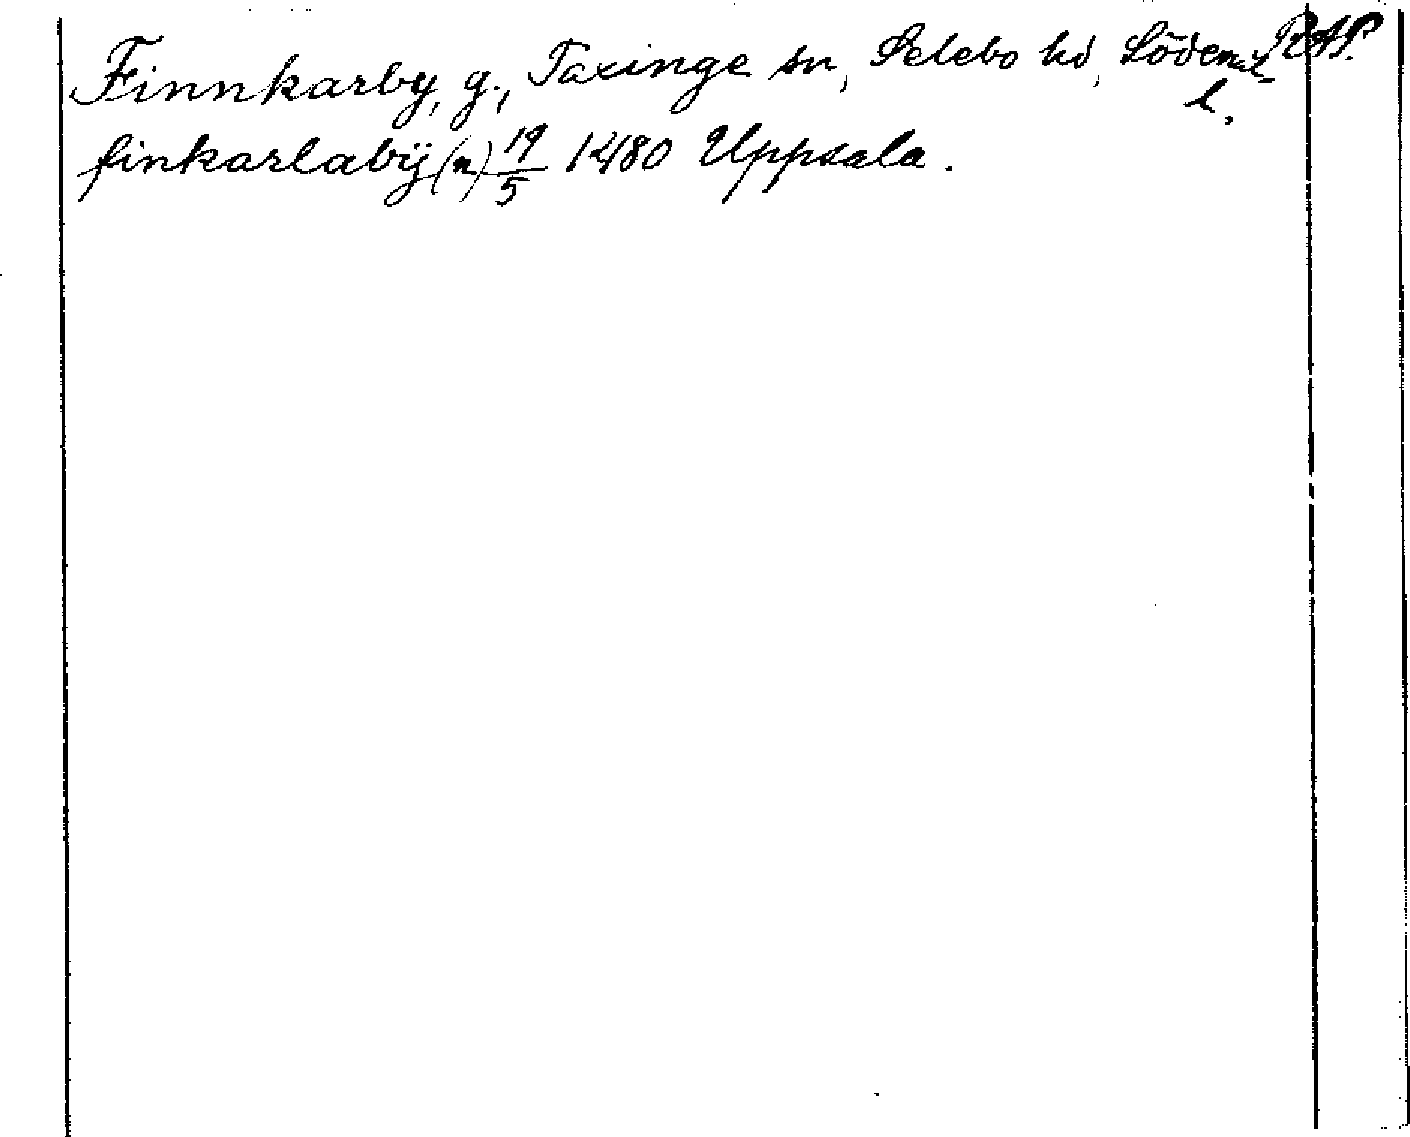 Finnkarby, g., Taxinge sn, Selebo hd, Söderml. RAP.
l.
finkarlabÿ (n) 19/5 1480 Uppsala.